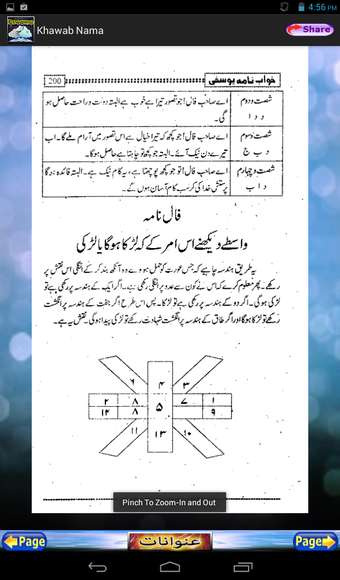 4:56 PM
Khawab Nama
Share
خواب نامہ یوسفی
200
شصت و دوم
د د ا
اے صاحب فال! جو تصور تیرا ہے خوب ہے البتہ دولت و راحت حاصل ہو
گی۔
شصت و سوم
د ب ج
اے صاحب فال! جو کچھ کہ تیرا خیال ہے اس تصور میں آرام ملے گا۔ اب
تیرے دن نیک آئے۔ البتہ جو کچھ تو چاہتا ہے حاصل ہوگا۔
شصت و چہارم
د ا ب
اے صاحب فال! تو جو کچھ پوچھتا ہے، یہ کام نیک ہے۔ البتہ فائدہ ہوگا
پرستش خدا کی کر سب کام آسان ہوں گے۔
فال نامہ
واسطے دیکھنے اس امر کے کہ لڑکا ہوگا یا لڑکی
یہ طریق ہندسہ چاہیے کہ جس عورت کو حمل ہووے وہ آنکھ بند کر کے انگلی اس نقش پر
رکھے۔ پھر معلوم کرے کہ اس نے کون سے عدد پر انگلی رکھی ہے۔ اگر ایک کے ہندسہ پر رکھی ہے تو
لڑکی ہوگی۔ اگر دو کے ہندسہ پر رکھی ہے تو لڑکا۔ پس اس طرح اگر جفت کے ہندسہ پر انگشت
رکھے تو لڑکا ہوگا اور اگر طاق کے ہندسہ پر انگشت شہادت رکھے تو لڑکی پیدا ہوگی۔ نقش یہ ہے۔
۶ ۴ ۳
۲ ۸ ۵ ۷ ۱
۱۲ ۸ ۹
۱۱ ۱۳ ۱۰
Pinch To Zoom-In and Out
Page
عنوانات
Page